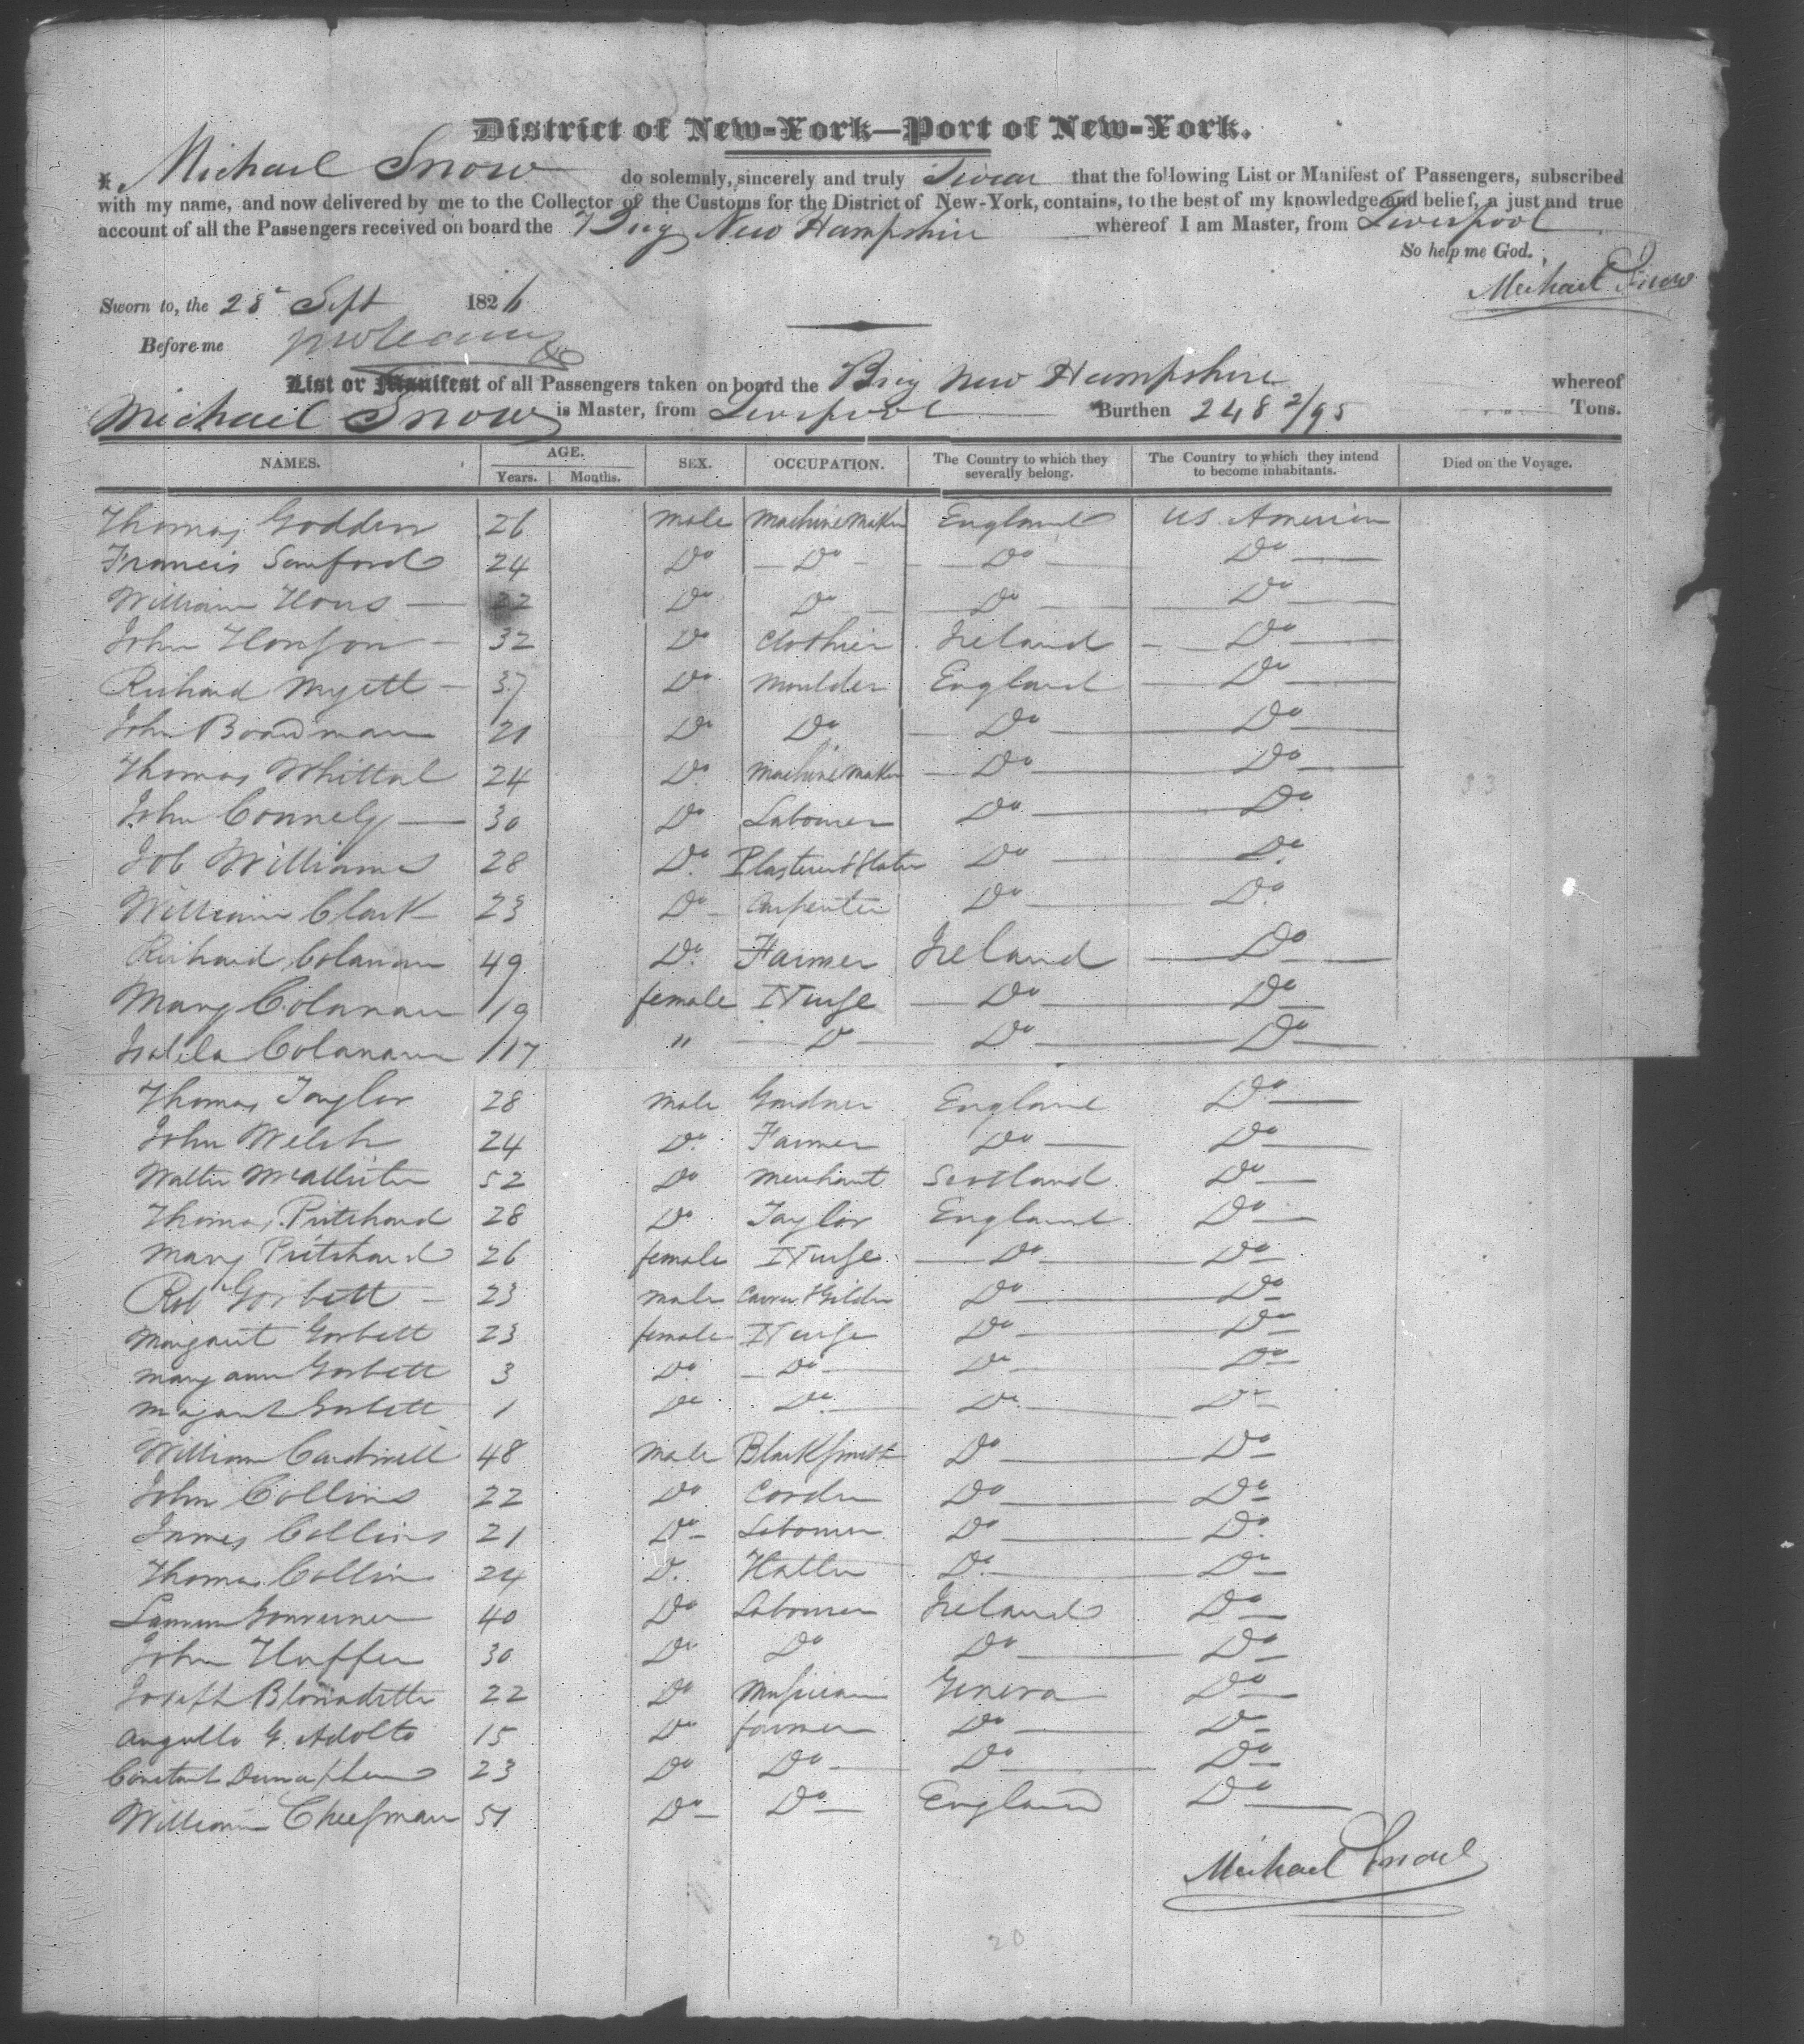 District of New-York—Port of New-York.
I, Michael Snow do solemnly, sincerely and truly Swear that the following List or Manifest of Passengers, subscribed
with my name, and now delivered by me to the Collector of the Customs for the District of New-York, contains, to the best of my knowledge and belief, a just and true
account of all the Passengers received on board the Brig New Hampshire whereof I am Master, from Liverpool
So help me God.
Michael Snow
Sworn to, the 28 Sept 1826
Before me
List or Manifest of all Passengers taken on board the Brig New Hampshire whereof
Michael Snow is Master, from Liverpool Burthen 248 2/95 Tons.
NAMES. AGE. Years. Months. SEX. OCCUPATION. The Country to which they severally belong. The Country to which they intend to become inhabitants. Died on the Voyage.
Thomas Godden 26 male Machine Maker England US. America
Francis Samford 24 Do Do Do Do
William 22 Do Do Do Do
John 32 Do Clothier Ireland Do
Richard Myett 37 Do Moulder England Do
John Boardman 21 Do Do Do Do
Thomas Whittal 24 Do Machine Maker Do Do
John Connely 30 Do Labourer Do Do
Job Williams 28 Do Plasterer & Slater Do Do
William Clark 23 Do Carpenter Do Do
Richard Colanan 49 Do Farmer Ireland Do
Mary Colanan 19 female Do Do
Isabela Colanan 17 " D Do Do
Thomas Taylor 28 male Gardner England Do
John Welch 24 Do Farmer Do Do
Walter McAllister 52 Do Merchant Scotland Do
Thomas Pritchard 28 Do Taylor England Do
Mary Pritchard 26 female Do Do
Robt Gorbett 23 male Carver & Gilder Do Do
Margaret Gorbett 23 female Do Do
Mary ann Gorbett 3 Do Do Do Do
Magaret Gorbett 1 Do Do Do Do
William Cardwell 48 male Blacksmith Do Do
John Collins 22 Do Do Do
James Collins 21 Do Labourer Do Do
Thomas Collins 24 D. Hatter Do Do
40 Do Labourer Ireland Do
John 30 Do Do Do Do
Joseph 22 Do Musician Geneva Do
G. Adolto 15 Do farmer Do Do
Constant 23 Do Do Do Do
William Cheesman 51 Do Do England Do
Michael Snow
20